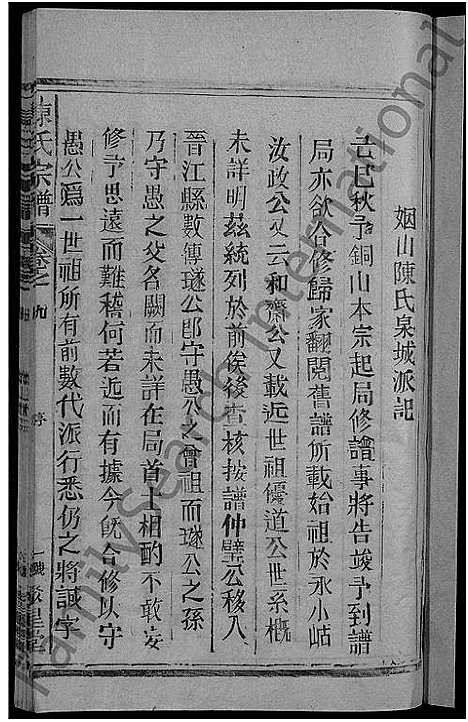 姻山陳氏泉城派記
己巳秋予銅山本宗起局修譜事將告竣予到譜
局亦欲合修歸家翻閱舊譜所載始祖於永小岵
汝政公父云和齋公又載近世祖優道公世系概
未詳明茲統列於前俟後查核按譜仲璧公移入
晉江縣數傳璲公即守愚公之曾祖而璲公之孫
乃守愚之父各闕而未詳在局首士相酌不敢妄
修予思遠而難稽何若近而有據今旣合修以守
愚公爲一世祖所有前數代派行悉仍之將誠字
陳氏宗譜
卷之九
序
FamilySearch International